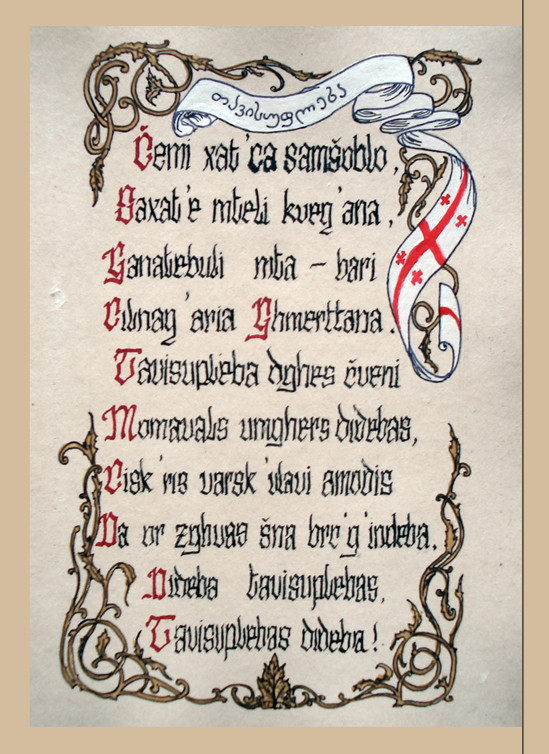 თავისუფლება
Čemi xat'ca samšoblo,
Saxat'e mteli kveq'ana,
Ganatebuli mta - bari
Cilnaq'aria Ghmerttana.
Tavisupleba dghes čveni
Momavals umghers didebas,
Cisk'ris varsk'vlavi amodis
Da or zghvas šua brc'q'indeba,
Dideba tavisuplebas,
Tavisuplebas dideba!